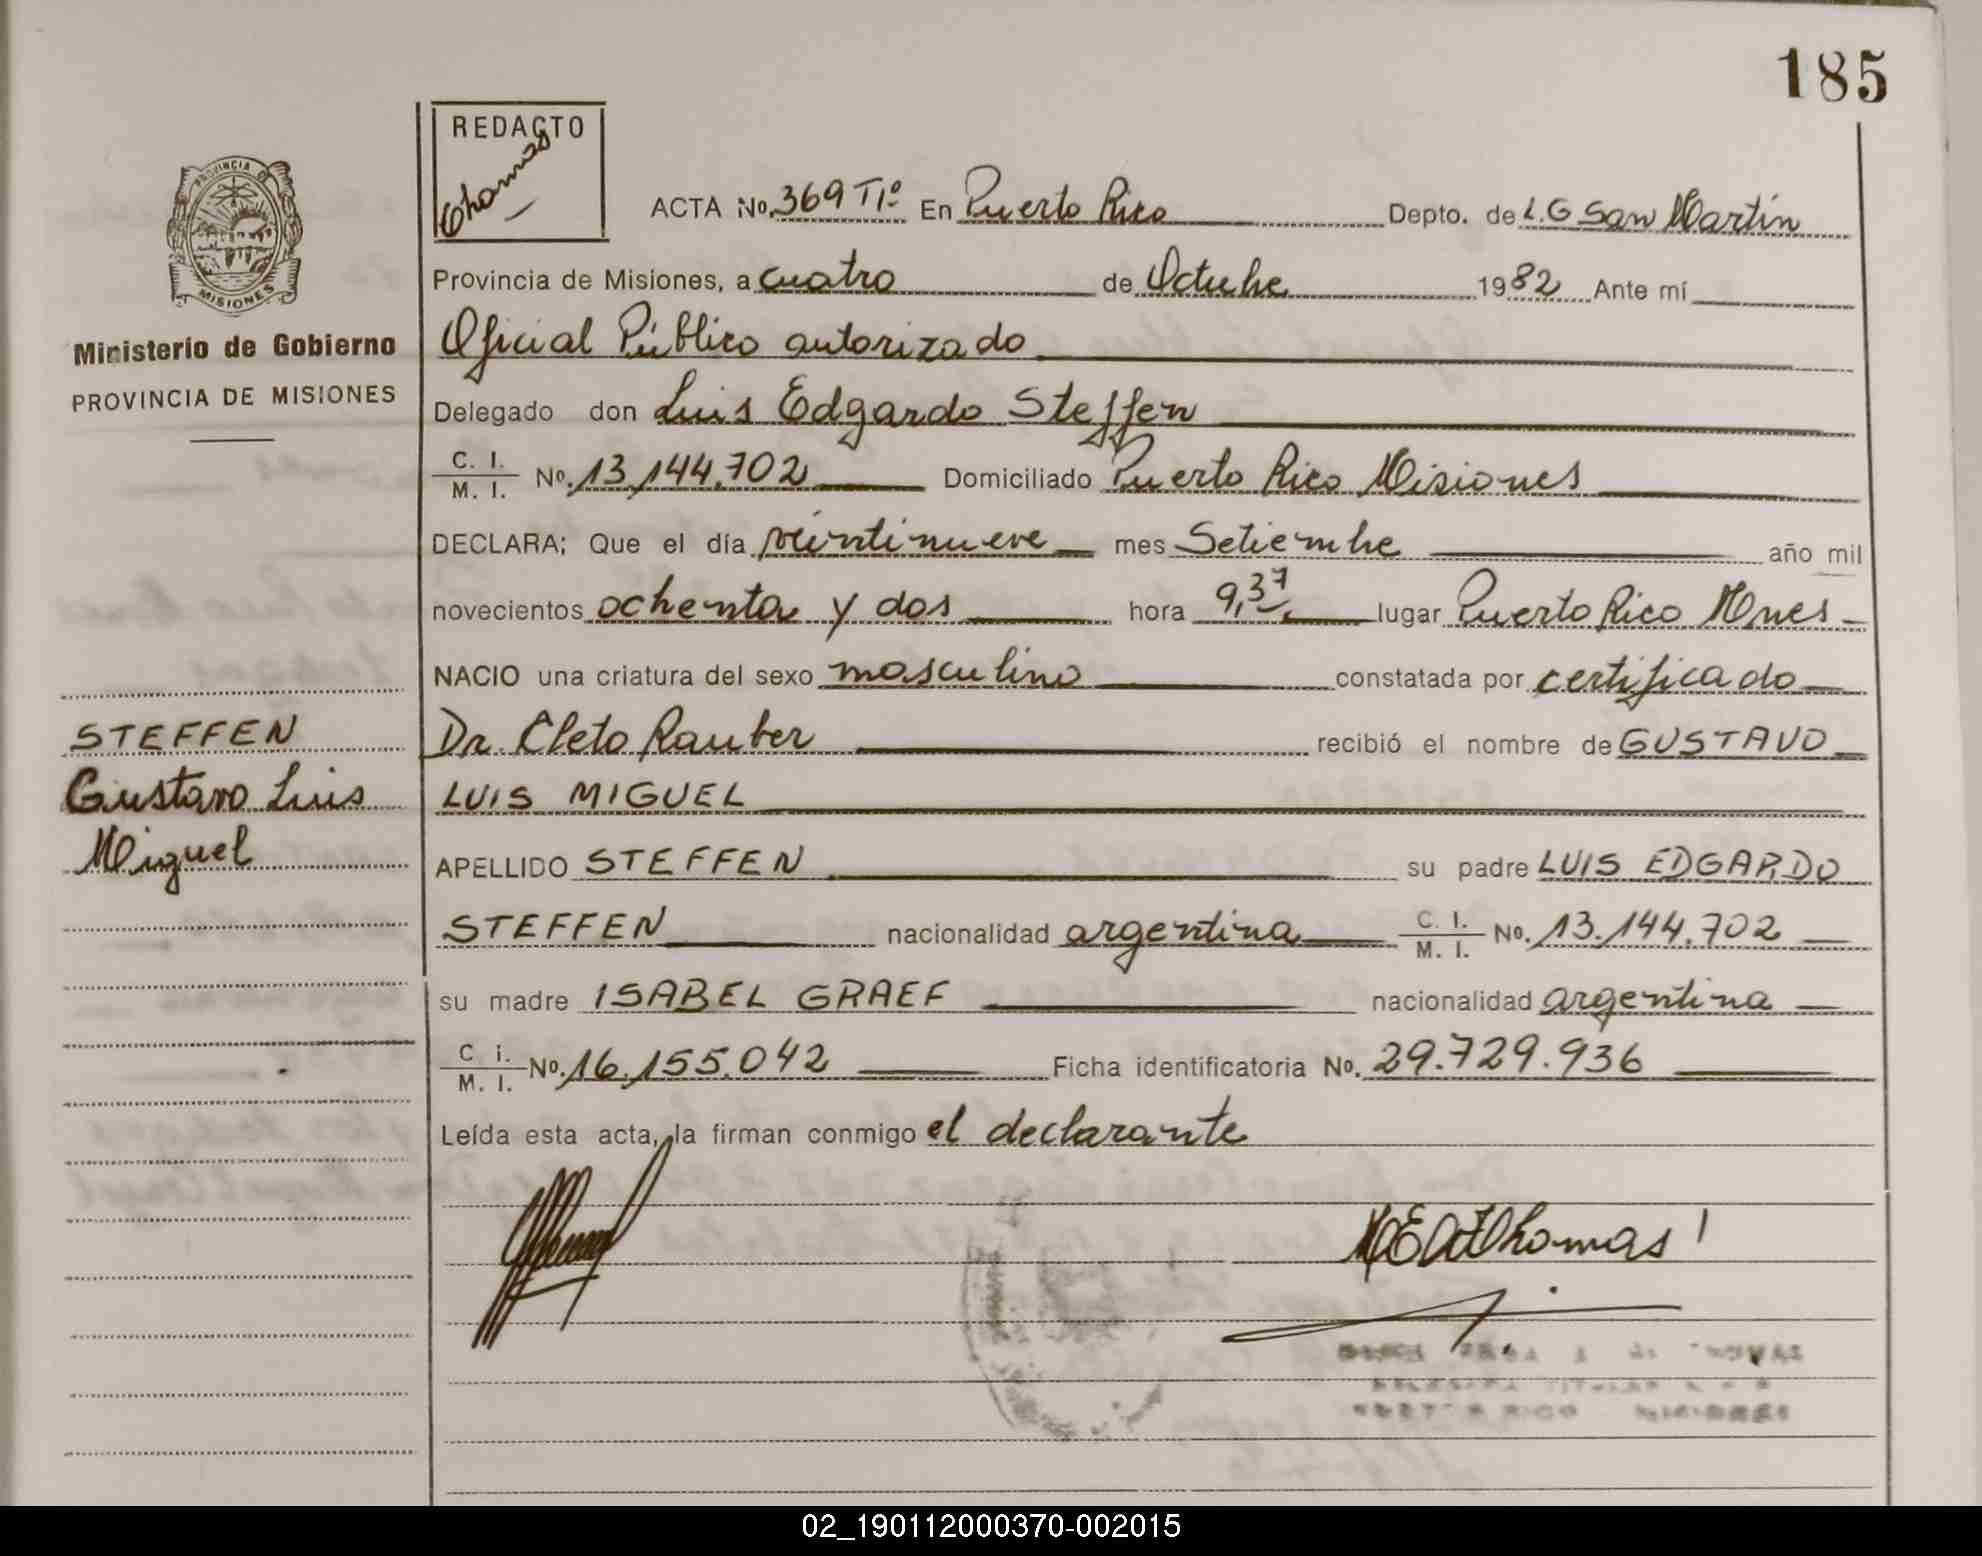 185
REDACTO
Thomas
PROVINCIA D
MISIONES
ACTA No. 369 Tº En Puerto Rico Depto. de L.G San Martín
Provincia de Misiones, a cuatro de Octubre 1982 Ante mí
Ministerio de Gobierno
PROVINCIA DE MISIONES
Oficial Público autorizado
Delegado don Luis Edgardo Steffen
C. I. / M. I. No. 13.144.702 Domiciliado Puerto Rico Misiones
DECLARA; Que el día veintinueve mes Setiembre año mil
novecientos ochenta y dos hora 9,37 lugar Puerto Rico Mnes
NACIO una criatura del sexo masculino constatada por certificado
Dr. Cleto Rauber recibió el nombre de GUSTAVO
LUIS MIGUEL
STEFFEN
Gustavo Luis
Miguel
APELLIDO STEFFEN su padre LUIS EDGARDO
STEFFEN nacionalidad argentina C. I. / M. I. No. 13.144.702
su madre ISABEL GRAEF nacionalidad argentina
C. i. / M. I. No. 16.155.042 Ficha identificatoria No. 29.729.936
Leída esta acta, la firman conmigo el declarante
Thomas
PUERTO RICO MISIONES
02_190112000370-002015